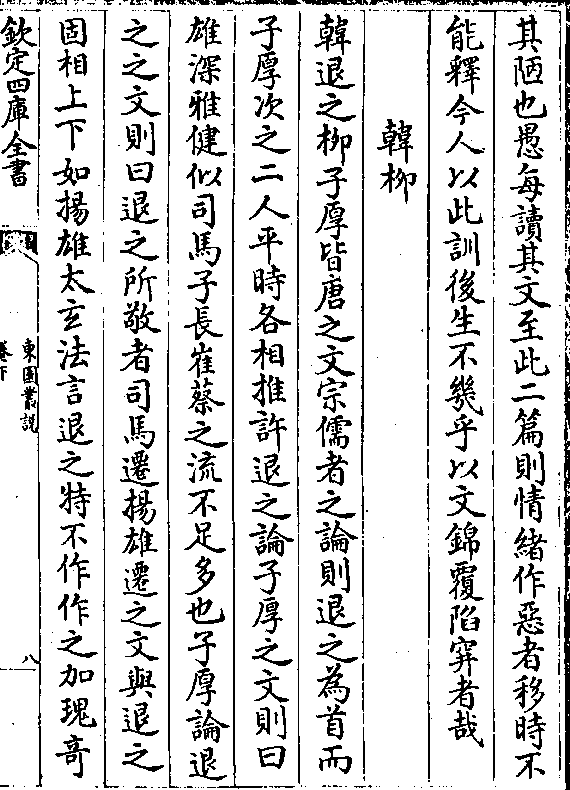 其陋也愚每讀其文至此二篇則情緒作惡者移時不
能釋今人以此訓後生不幾乎以文錦覆陷穽者哉
韓柳
韓退之柳子厚皆唐之文宗儒者之論則退之為首而
子厚次之二人平時各相推許退之論子厚之文則曰
雄深雅健似司馬子長崔蔡之流不足多也子厚論退
之之文則曰退之所敬者司馬遷揚雄遷之文與退之
固相上下如揚雄太玄法言退之特不作作之加瑰奇
欽定四庫全書
東園叢說
卷下
八